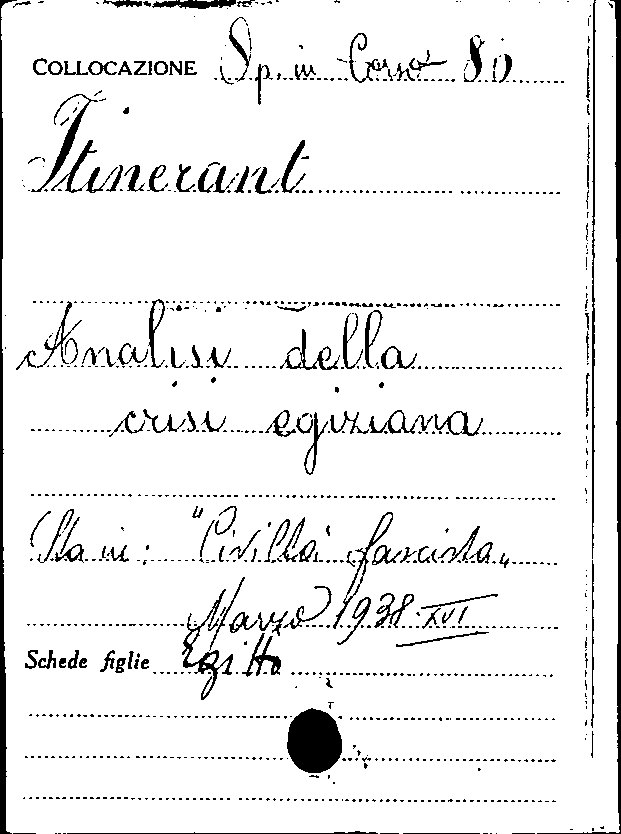 COLLOCAZIONE Sp. in Corso 80
Itinerant
Analisi della
crisi egiziana
Sta in: "Civiltà fascista„
Marzo 1938-XVI
Schede figlie Egitto